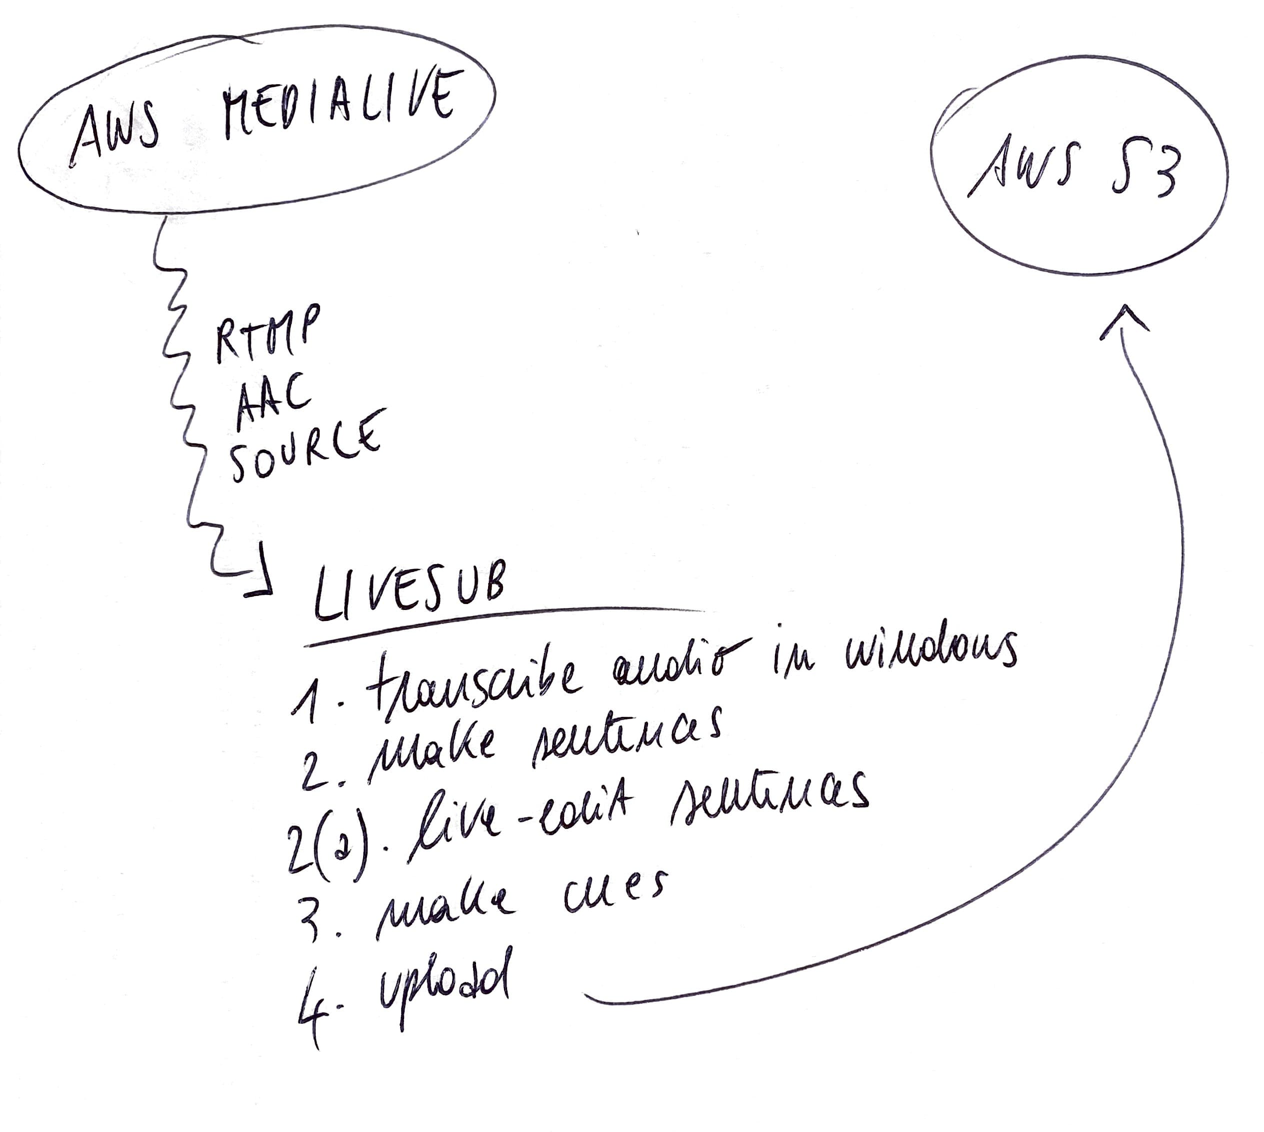 AWS MEDIALIVE
AWS S3
RTMP
AAC
SOURCE
LIVESUB
1. transcribe audio in windows
2. make sentences
2(a). live-edit sentences
3. make cues
4. upload